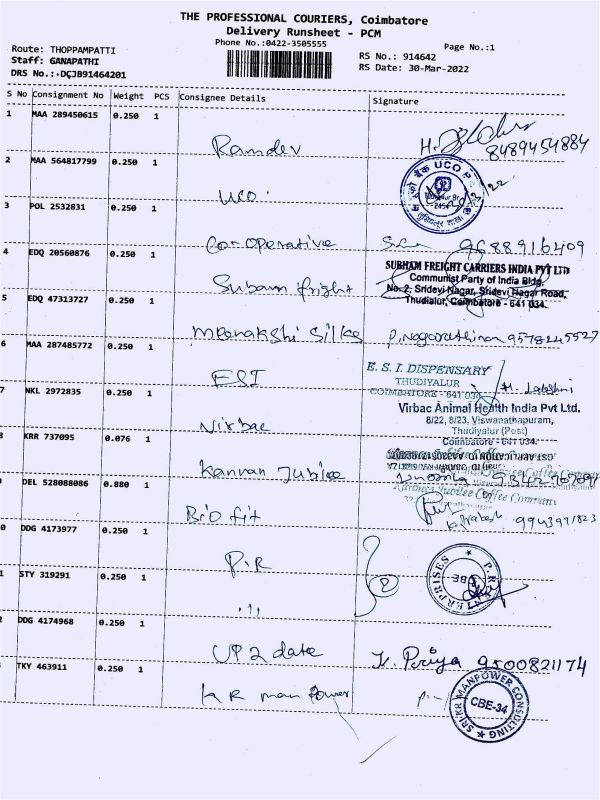 THE PROFESSIONAL COURIERS, Coimbatore
Delivery Runsheet - PCM
Phone No.:0422-3505555
Page No.:1
Route: THOPPAMPATTI
RS No.: 914642
Staff: GANAPATHI
RS Date: 30-Mar-2022
DRS No.: DCJB91464201
S No Consignment No Weight PCS Consignee Details Signature
1 MAA 289450615 0.250 1
Ramdev 8489454884
2 MAA 564817799 0.250 1
UCO
UCO
3 POL 2532831 0.250 1
Co-operative 9688916409
4 EDQ 20560876 0.250 1
Subam fright
SUBHAM FREIGHT CARRIERS INDIA PVT LTD
Communist Party of India Bldg.
No. 2, Sridevi Nagar, Sridevi Nagar Road,
Thudialur, Coimbatore - 641 034.
5 EDQ 47313727 0.250 1
Meenakshi Silks P. Nagarathinam 9578245527
6 MAA 287485772 0.250 1
ESI
E. S. I. DISPENSARY
THUDIYALUR
COIMBATORE - 641 034
M. Lakshmi
7 NKL 2972835 0.250 1
Virbac
Virbac Animal Health India Pvt Ltd.
8/22, 8/23, Viswanathapuram,
Thudiyalur (Post)
Coimbatore - 641 034.
8 KRR 737095 0.076 1
Kannan Jubilee
Kannan Jubilee Coffee Company
9 DEL 528088086 0.880 1
Bio fit 9943971823
0 DDG 4173977 0.250 1
P.R
P.R ENTERPRISES
CBE
1 STY 319291 0.250 1
,, 2
2 DDG 4174968 0.250 1
UP 2 date K. Priya 9500821174
3 TKY 463911 0.250 1
KR man power
SRI KR MANPOWER CONSULTING
CBE-34